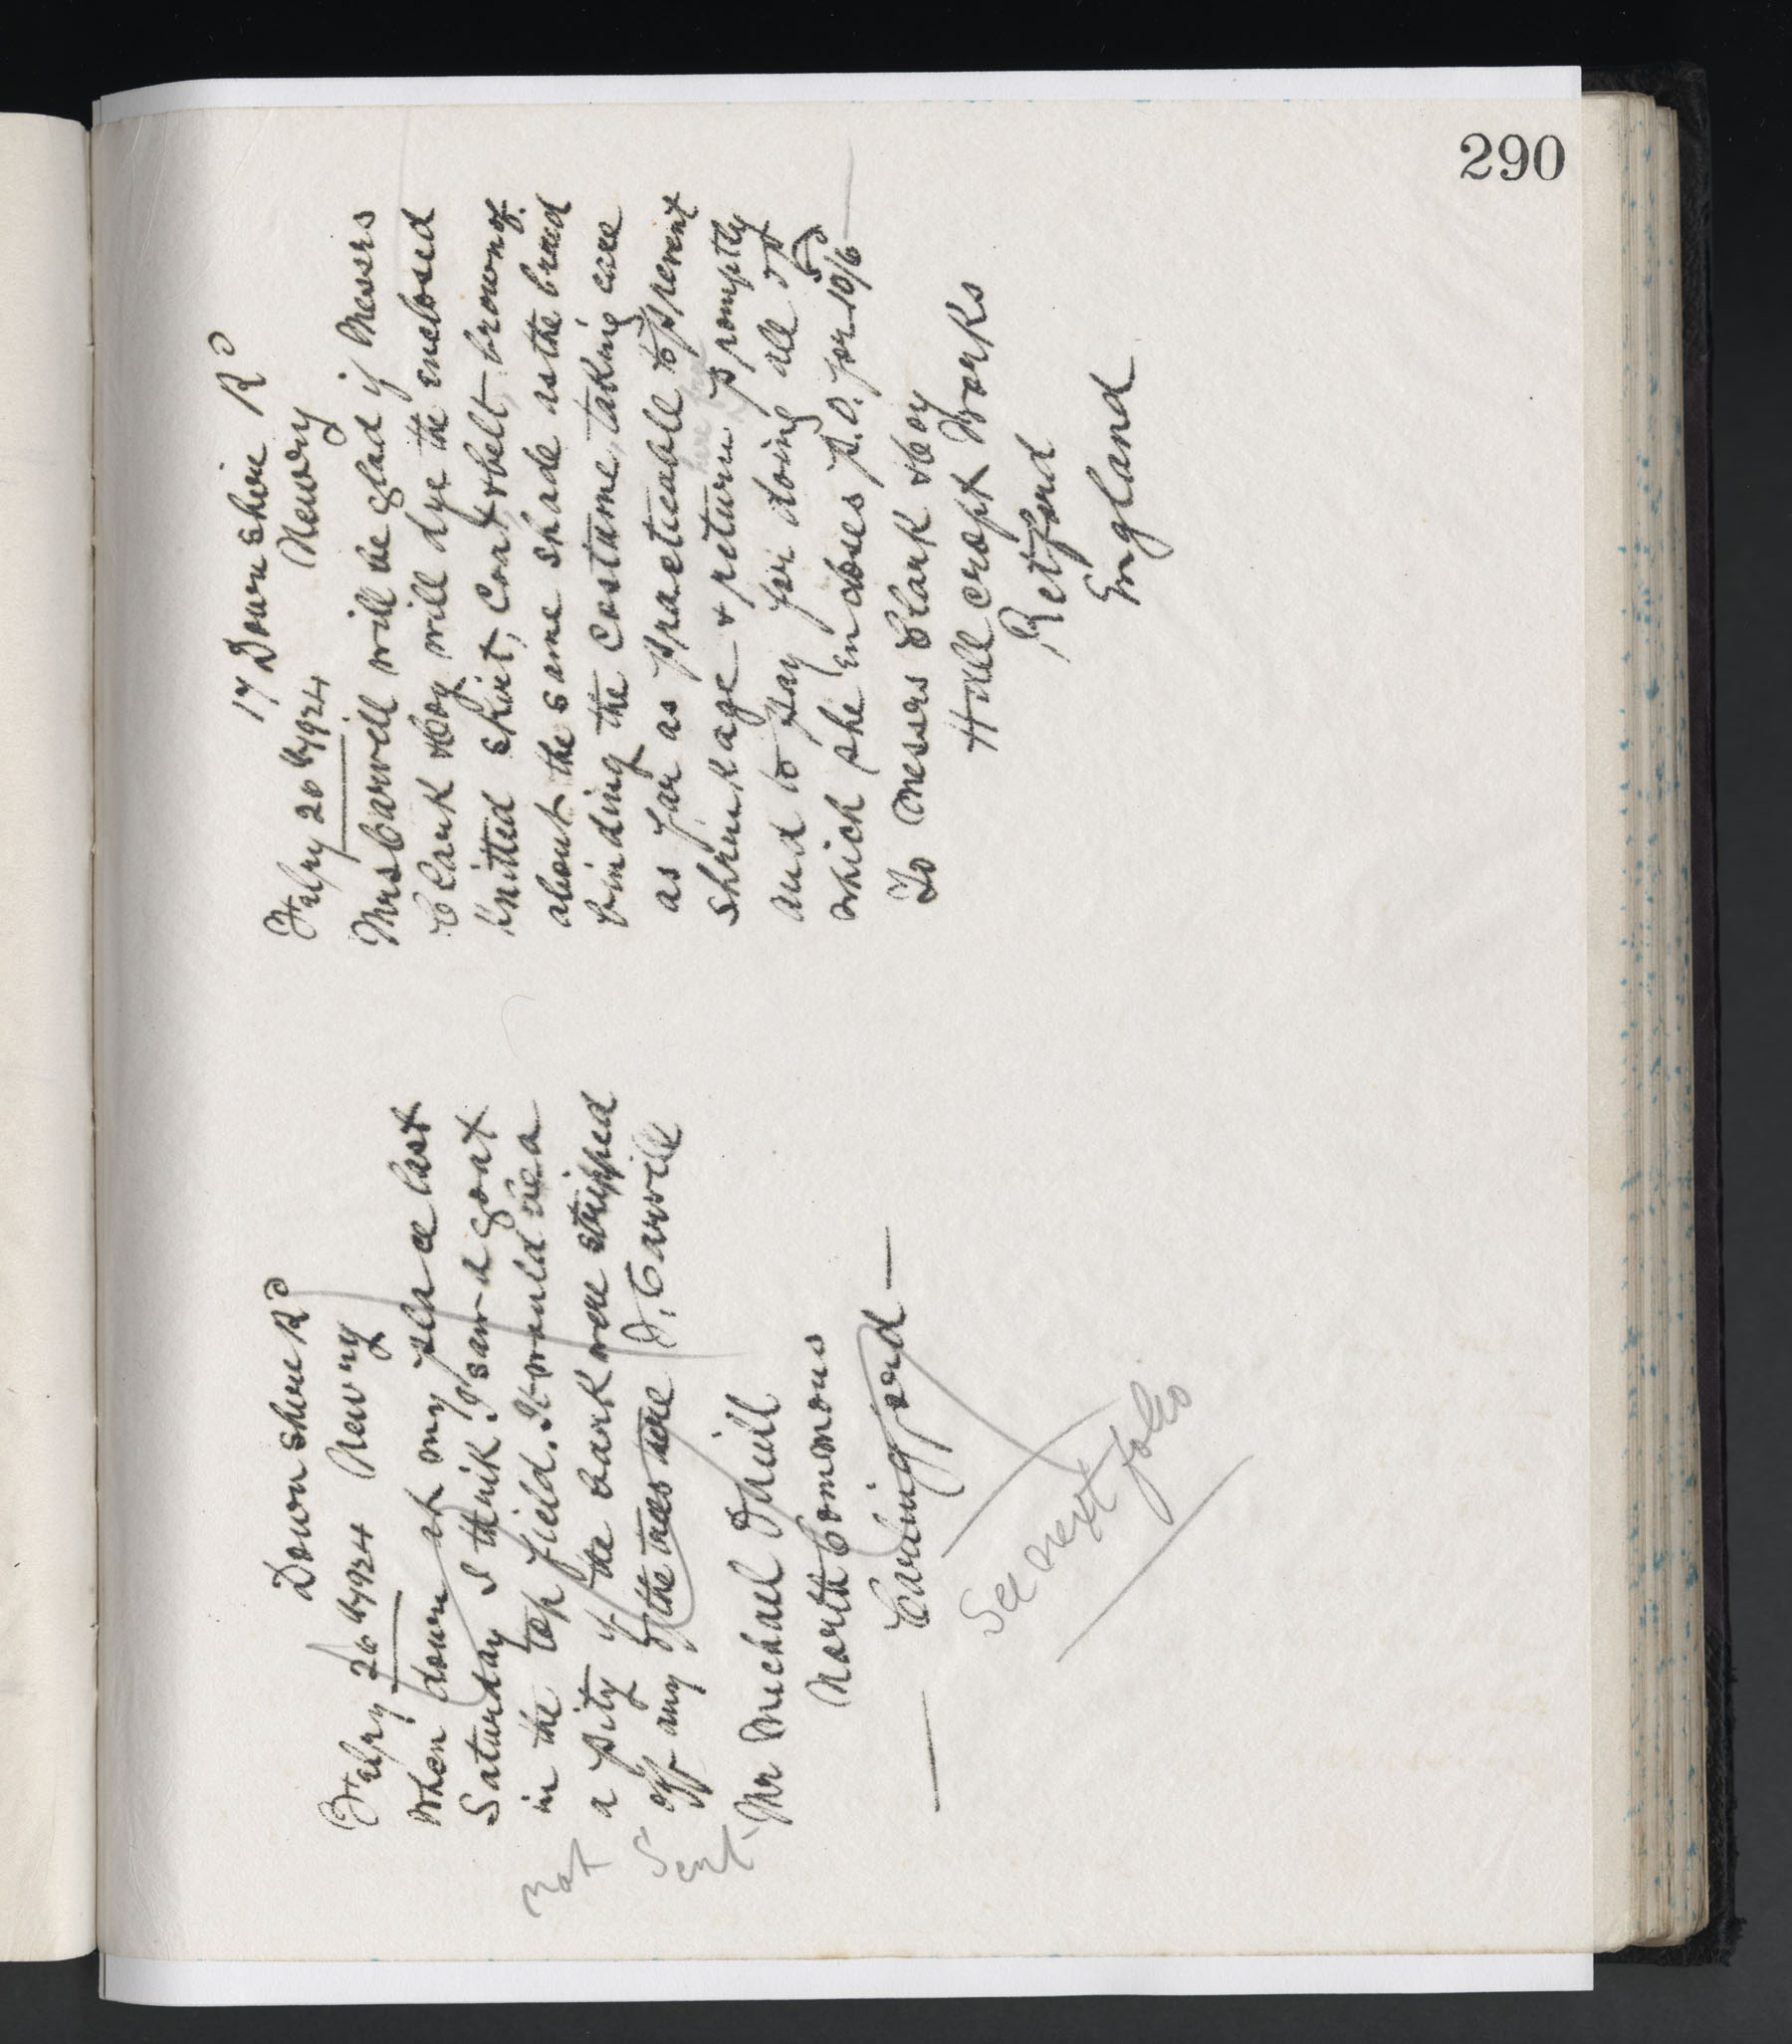 290
Downshire Rd
Feby 26th/1924 Newry
When down at my place last
Saturday I think I saw a goat
in the top field. It would be a
a pity if the bark were stripped
off any of the trees there
Carvill
Mr Michael O'Neill
North Commons
Carlingford
Not
Sent
See next folio
17 Downshire Rd
Newry
Feby 26th/1924
Mrs Carvill will be glad if Messrs
Clark & Coy will dye the enclosed
knitted skirt, coat & belt, brown of
about the same shade as the braid
binding the costume, taking care
as far as practicable to prevent
shrinkage & return promptly
and to pay for doing all
which she encloses P.O. for 10/6
To Messrs Clark & Coy
Hallcroft Works
Retford
England